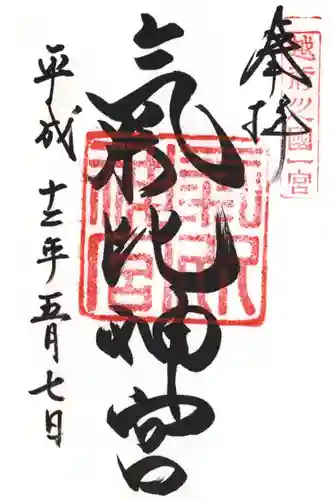 奉拝
越前之國一宮
氣比神宮
氣比神宮
平成十二年五月七日